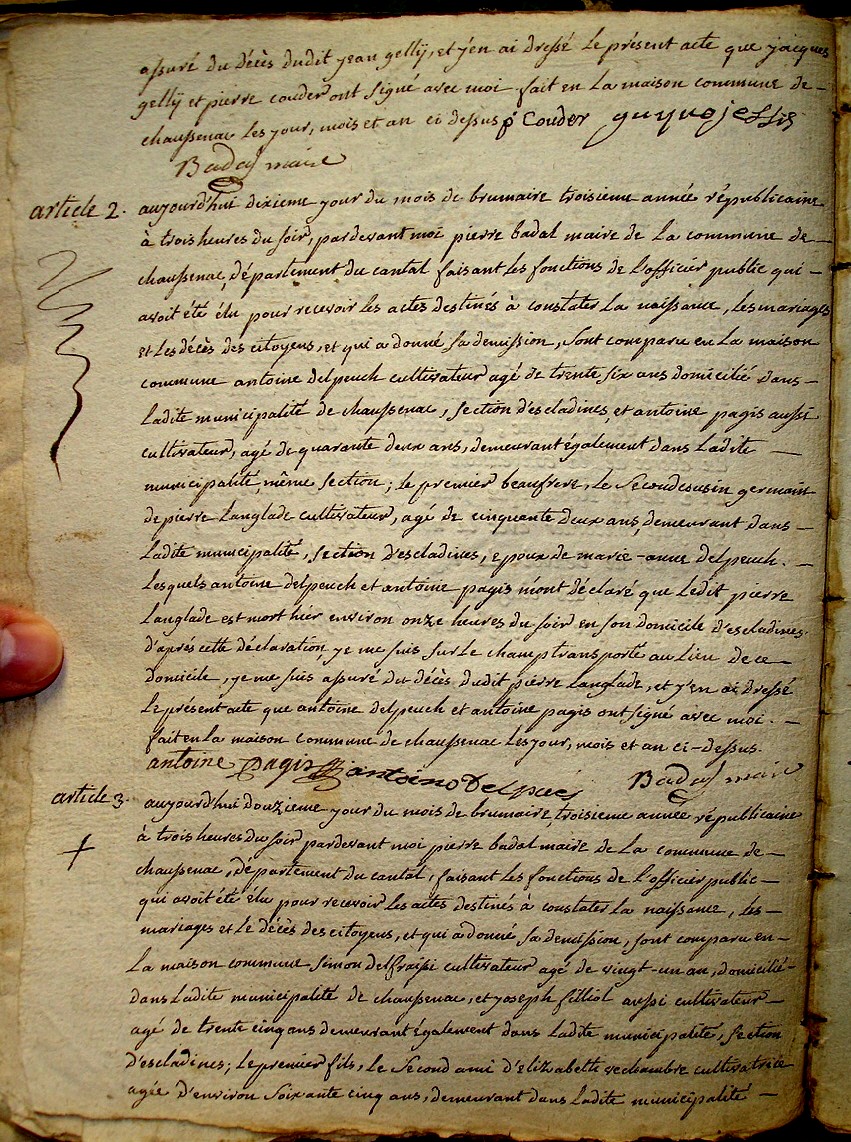 assuré du décès dudit jean gelly, et j'en ai dressé le présent acte que jacques
gelly et pierre couder ont signé avec moi fait en la maison commune de —
chaussenac les jour, mois et an ci dessus p Couder
Badal maire
article 2. aujourd'hui dixieme jour du mois de brumaire troisieme année républicaine
à trois heures du soir, pardevant moi pierre badal maire de la commune de —
chaussenac, département du cantal faisant les fonctions de l'officier public qui —
avoit été élu pour recevoir les actes destinés à constater la naissance, les mariages
et les décès des citoyens, et qui a donné sa demission, sont comparu en la maison
commune antoine delpeuch cultivateur agé de trente six ans domicilié dans —
ladite municipalité de chaussenac, section d'escladines, et antoine pagis aussi
cultivateur, agé de quarante deux ans, demeurant également dans ladite —
municipalité, même section; le premier beaufrere, le second cousin germain
de pierre langlade cultivateur, agé de cinquante deux ans, demeurant dans —
ladite municipalité, section d'escladines, epoux de marie-anne delpeuch. —
lesquels antoine delpeuch et antoine pagis m'ont déclaré que ledit pierre
langlade est mort hier environ onze heures du soir en son domicile d'escladines.
d'après cette déclaration, je me suis sur le champ transporté au lieu de ce —
domicile, je me suis assuré du décès dudit pierre langlade, et j'en ai dressé
le présent acte que antoine delpeuch et antoine pagis ont signé avec moi. —
fait en la maison commune de chaussenac les jour, mois et an ci-dessus.
antoine pagis antoine Delpuée Badal maire
article 3. aujourd'hui douzieme jour du mois de brumaire, troisieme année républicaine
à trois heures du soir pardevant moi pierre badal maire de la commune de —
chaussenac, département du cantal, faisant les fonctions de l'officier public —
qui avoit été élu pour recevoir les actes destinés à constater la naissance, les —
mariages et le décès des citoyens, et qui a donné sa demission, sont comparu en —
la maison commune simon delfraissi cultivateur agé de vingt-un an, domicilié —
dans ladite municipalité de chaussenac, et joseph filliol aussi cultivateur —
agé de trente cinq ans demeurant également dans ladite municipalité, section
d'escladines; le premier fils, le second ami d'elizabette vechambre cultivatrice
agée d'environ soixante cinq ans, demeurant dans ladite municipalité —